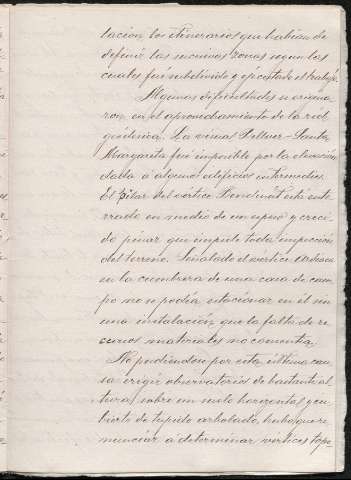 lación los itinerarios que habian de
definir las secciones zonas segun las
cuales fue subdividido y ejecutado el trabajo.
Algunas dificultades se origina
ron en el aprovechamiento de la red
geodésica. La visual Bellver-Santa
Margarita fué imposible por la elevación
dada á algunos edificios intermedios.
El Pilar del vértice Bendinat está ente
rrado en medio de un espeso y creci
do pinar que impide toda inspección
del terreno. Señalado el vértice
en la cumbrera de una casa de cam
po no se podia estacionar en él sin
una instalación que la falta de re
cursos materiales no consentia.
No pudiendo por esta última cau
sa erigir observatorios de bastante al
tura, sobre un suelo horizontal y cu
bierto de tupido arbolado, hubo que re
nunciar á determinar vertices topo